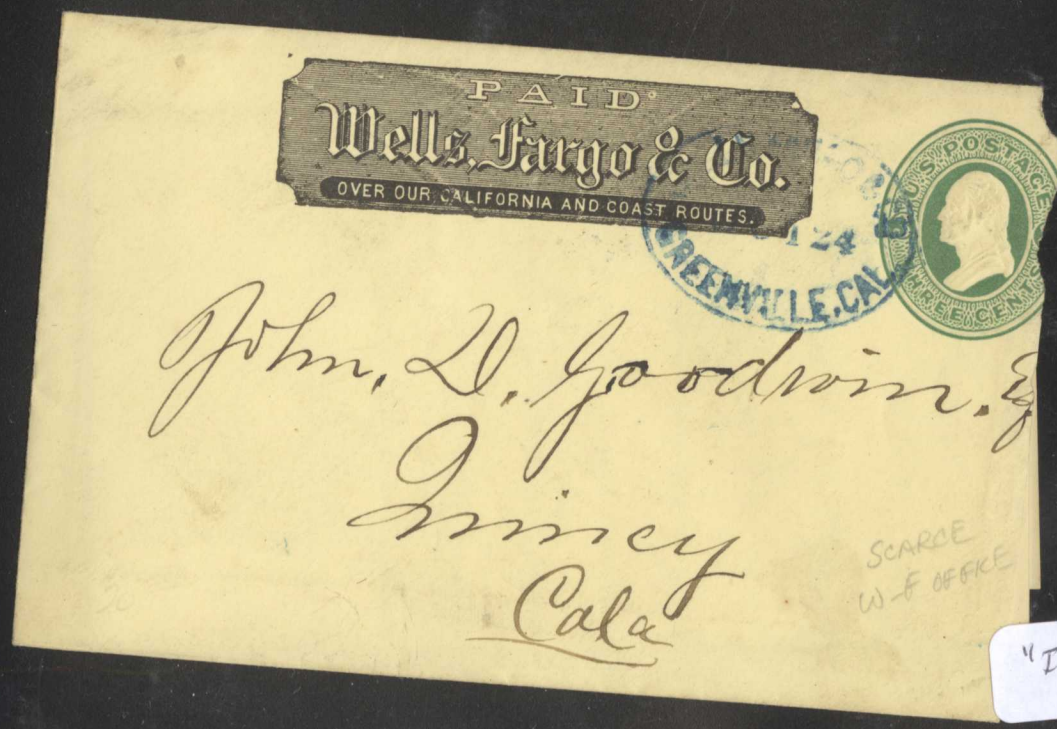 PAID
Wells, Fargo & Co.
OVER OUR CALIFORNIA AND COAST ROUTES.
24
GREENVILLE, CAL.
U.S. POSTAGE
THREE CENTS
John. D. Goodwin. Esq
Quincy
Cala
SCARCE
W-F OFFICE
"I